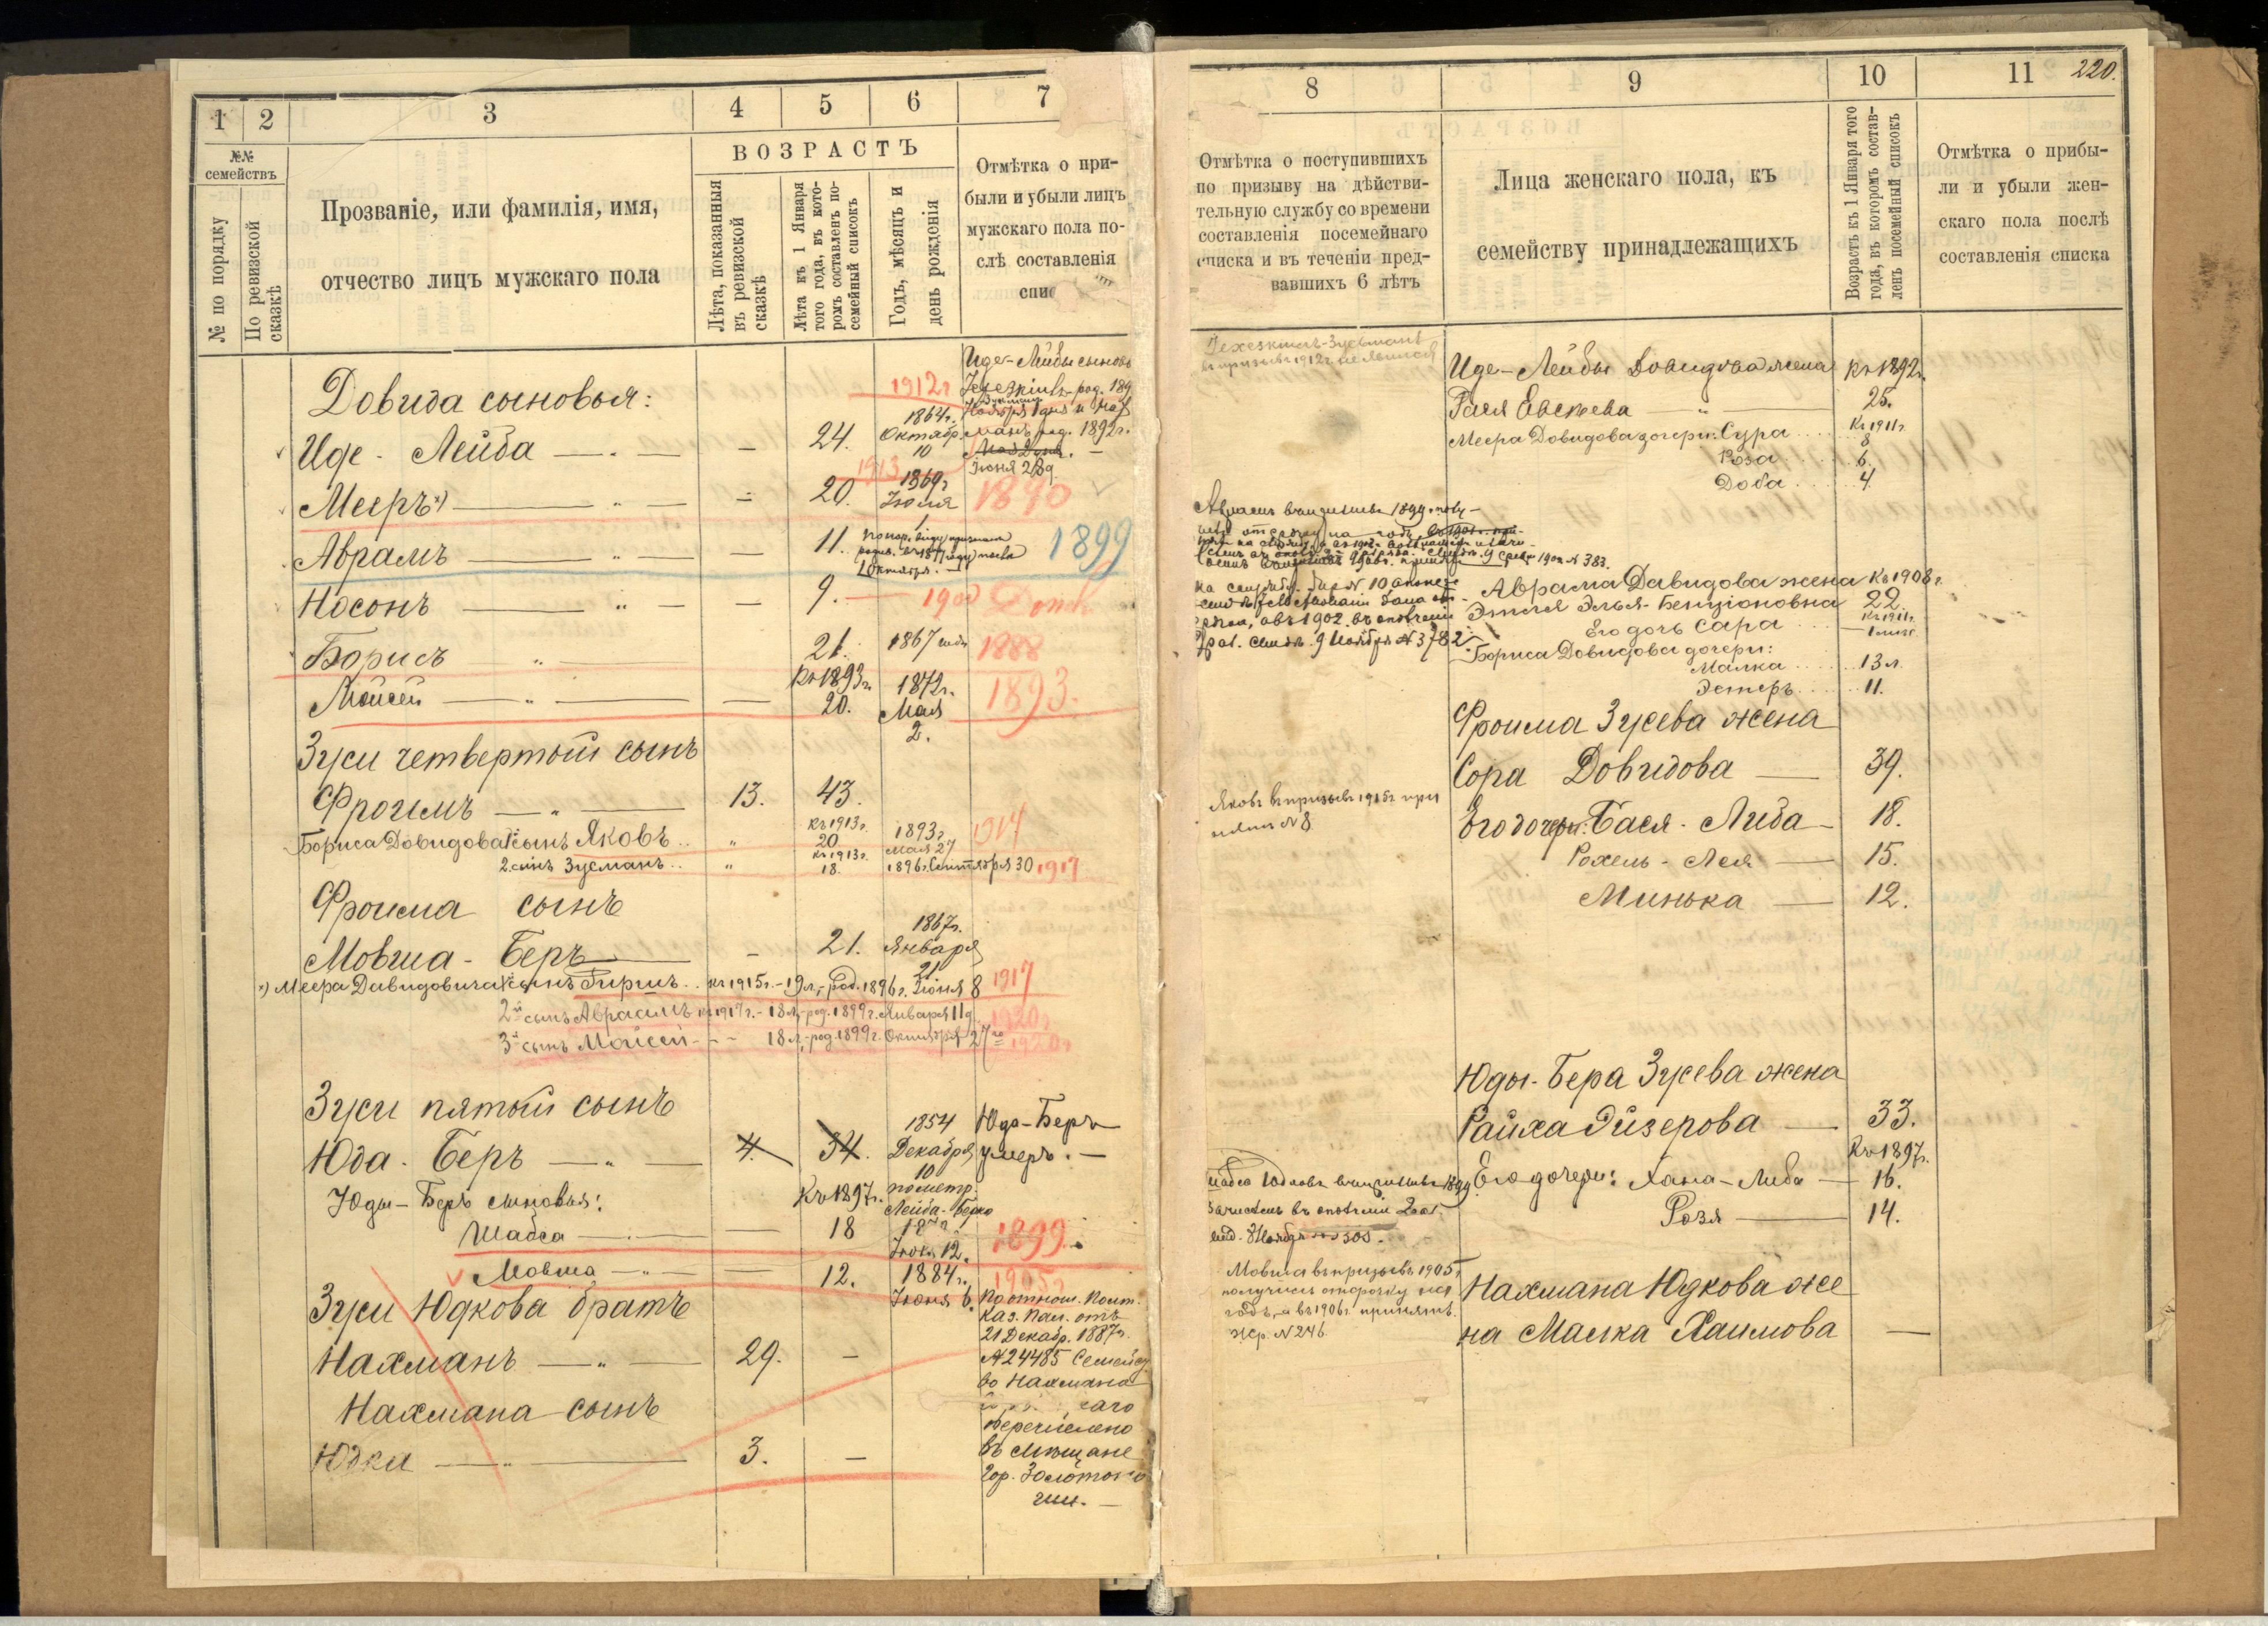 1
2
3
4
5
6
7
№№ семействъ
№ по порядку
По ревизской сказкѣ
Прозваніе, или фамилія, имя,
отчество лицъ мужскаго пола
ВОЗРАСТЪ
Лѣта, показанныя
въ ревизской
сказкѣ
Лѣта къ 1 Января
того года, въ кото-
ромъ составленъ по-
семейный списокъ
Годъ, мѣсяцъ и
день рожденія
Отмѣтка о при-
были и убыли лицъ
мужскаго пола по-
слѣ составленія
Довида сыновья:
Иде-Лейбы сыновья
1912г
Иде - Лейба — 24. 1864г. Октябр. 10
Ноября 1 дня и
род. 1892г.
Іюня 28д
1913
Мееръ — 20. 1869г Іюля 1 1890
Аврамъ — 11. 1899
1 Октября.
Носонъ — 9. 1900
Борисъ 21. 1867 года 1888
Къ 1893г.
Мойсей — 20. 1872г. Мая 2. 1893.
Зуси четвертый сынъ
Фроимъ 13. 43.
Бориса Довидова сынъ Яковъ къ 1913г. 20 1893г. мая 27 1914
2. сынъ Зусманъ къ 1913г. 18. 1896г. Сентября 30 1917
Фроима сынъ
Мовша - Беръ 21. 1867г. Января 21
Меера Давидовича сынъ Гиршъ къ 1915г. - 19 л, - род. 1896г. Іюня 8 1917
2й сынъ Авраамъ къ 1917г. - 18 л, - род. 1899г. Января 11д. 1920г
3й сынъ Мойсей - - 18 л, - род. 1899г. Октября 27го 1920г
Зуси пятый сынъ
Юда - Беръ 4. 34. 1854 Декабря 10
Юда-Беръ
умеръ. —
по метр.
Лейба-Берко
Юды-Бера сыновья: Къ 1897г.
Шабса — 18 Іюля 12. 1899.
Мовша — 12. 1884г. Іюня 6. 1905г
Зуси Юдкова братъ
Нахманъ 29. —
Нахмана сынъ
Юдка 3. —
По отнош. Полт.
Каз. Пал. отъ
21 Декабр. 1887г.
№ 24485 Семейст
во Нахмана
перечислено
въ мѣщане
гор. Золотоно
ши. —
8
9
10
11
220.
Отмѣтка о поступившихъ
по призыву на дѣйстви-
тельную службу со времени
составленія посемейнаго
списка и въ теченіи пред-
вавшихъ 6 лѣтъ
Лица женскаго пола, къ
семейству принадлежащихъ
Возрастъ къ 1 Января того
года, въ которомъ состав-
ленъ посемейный списокъ
Отмѣтка о прибы-
ли и убыли жен-
скаго пола послѣ
составленія списка
Іехезкиль-Зусманъ
въ призывъ 1912г. не явился
Иде-Лейбы Довидова жена Къ 1892г.
Рася Евсѣева 25.
Меера Довидова дочери: Сура Къ 1911г. 8
Роза 6.
Доба 4.
Аврама Давидова жена Къ 1908г.
Этля Элья-Бенціоновна 22
Его дочь Сара Къ 1911г.
Бориса Довидова дочери:
Малка 13 л.
Эстеръ 11.
Фроима Зусева жена
Сора Довидова 39.
Яковъ въ призывъ 1915г при
нятъ № 8
Его дочери: Бася - Либа 18.
Рохель - Лея 15.
Минька 12.
Юды-Бера Зусева жена
Райха Эйзерова 33.
Къ 1897г.
Его дочери: Хана-Либа 16.
Розя 14.
Мовша въ призывъ 1905г
получилъ отсрочку на
годъ, а въ 1906г. принятъ.
жр. № 246
Нахмана Юдкова же
на Малка Хаимова —